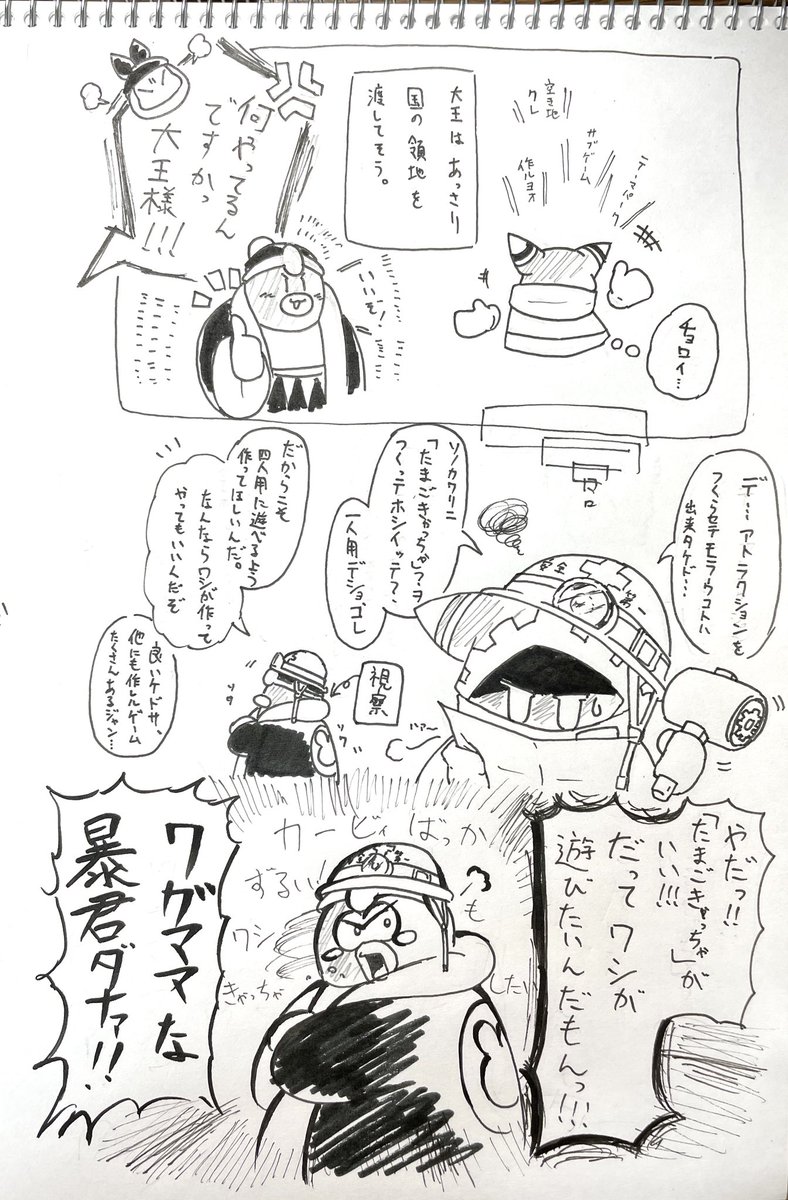 空き地
クレ
サブゲーム
テーマパーク
作ルヨォ
チョロイ…
大王は あっさり
国の領地を
渡してそう。
いいぞ!
何やってるん
ですかっ
大王様!!!
デ…アトラクションを
つくらセテモラウコトハ
出来タケド…
ソノカワリニ
「たまごきゃっちゃ」ヲ
つくっテホシイッテ?、
一人用デショコレ
だからこそ
四人用に遊べるよう
作ってほしいんだ。
なんならワシが作って
やってもいいんだぞ
視察
安全
第一
良いケドサ、
他にも作レルゲーム
たくさんあるジャン…
やだっ!!
「たまごきゃっちゃ」が
いい!!!
だって ワシが
遊びたいんだもんっ!!!
カービィばっか
ずるい!
ワシ
も
きゃっちゃ
したい
ワガママな
暴君ダナァ!!